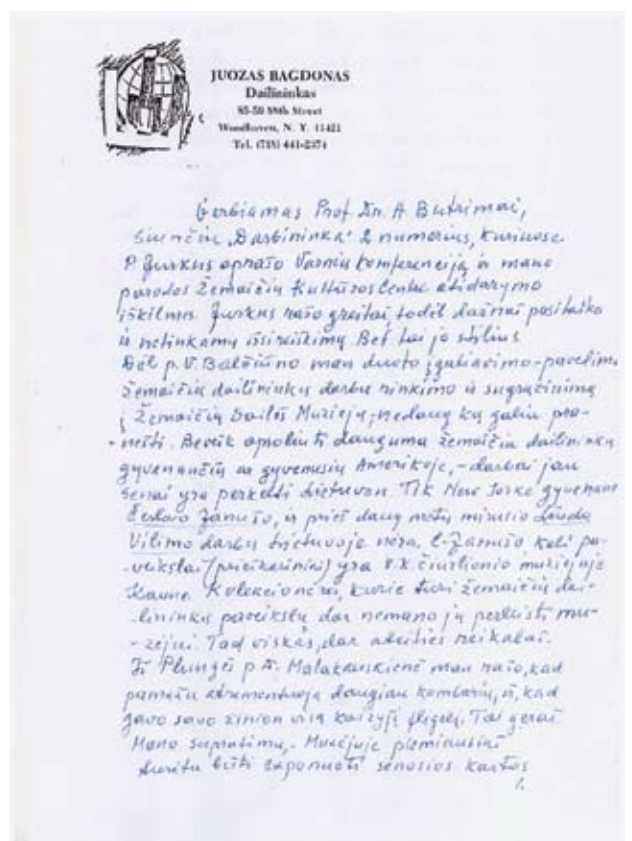 JUOZAS BAGDONAS
Dailininkas
85-50 88th Street
Woodhaven, N. Y. 11421
Tel. (718) 441-2374
Gerbiamas Prof. Dr. A. Butrimai,
Siunčiu „Darbininko" 2 numerius, kuriuose
P. Jurkus aprašo Varnių konferenciją ir mano
parodos Žemaičių Kultūros Centre atidarymo
iškilmę. Jurkus rašo greitai todėl dažnai pasitaiko
ir netinkamų išsireiškimų. Bet tai jo stilius.
Dėl p. V. Balčiūno man duoto įgaliavimo-pavedimo
žemaičių dailininkų darbų rinkimo ir sugrąžinimą
į Žemaičių Dailės Muziejų, nedaug ką galiu pra-
-nešti. Beveik apolinti daugumą žemaičių dailininkų
gyvenančių ar gyvenusių Amerikoje, - darbai jau
senai yra perkelti Lietuvon. Tik New Jorke gyvenanč
Česlovo Janušo, ir prieš daug metų mirusio Liudo
Vilimo darbų Lietuvoje nėra. Č. Janušo keli pa-
-veikslai (prieškariniai) yra V. K. Čiurlionio muziejuje
Kaune. Kolekcionieriai, kurie turi žemaičių dai-
-lininkų paveikslų dar nemano jų perleisti mu-
-zejui. Tad viskas, dar ateities reikalai.
Iš Plungės p. A. Malakauskienė man rašo, kad
pamažu atremontuoja daugiau kambarių, ir, kad
gavo savo žinion visą kairįjį fligelį. Tai gerai.
Mano supratimu, - Muziejuje pirmiausiai
turėtų būti exponuoti senosios kartos